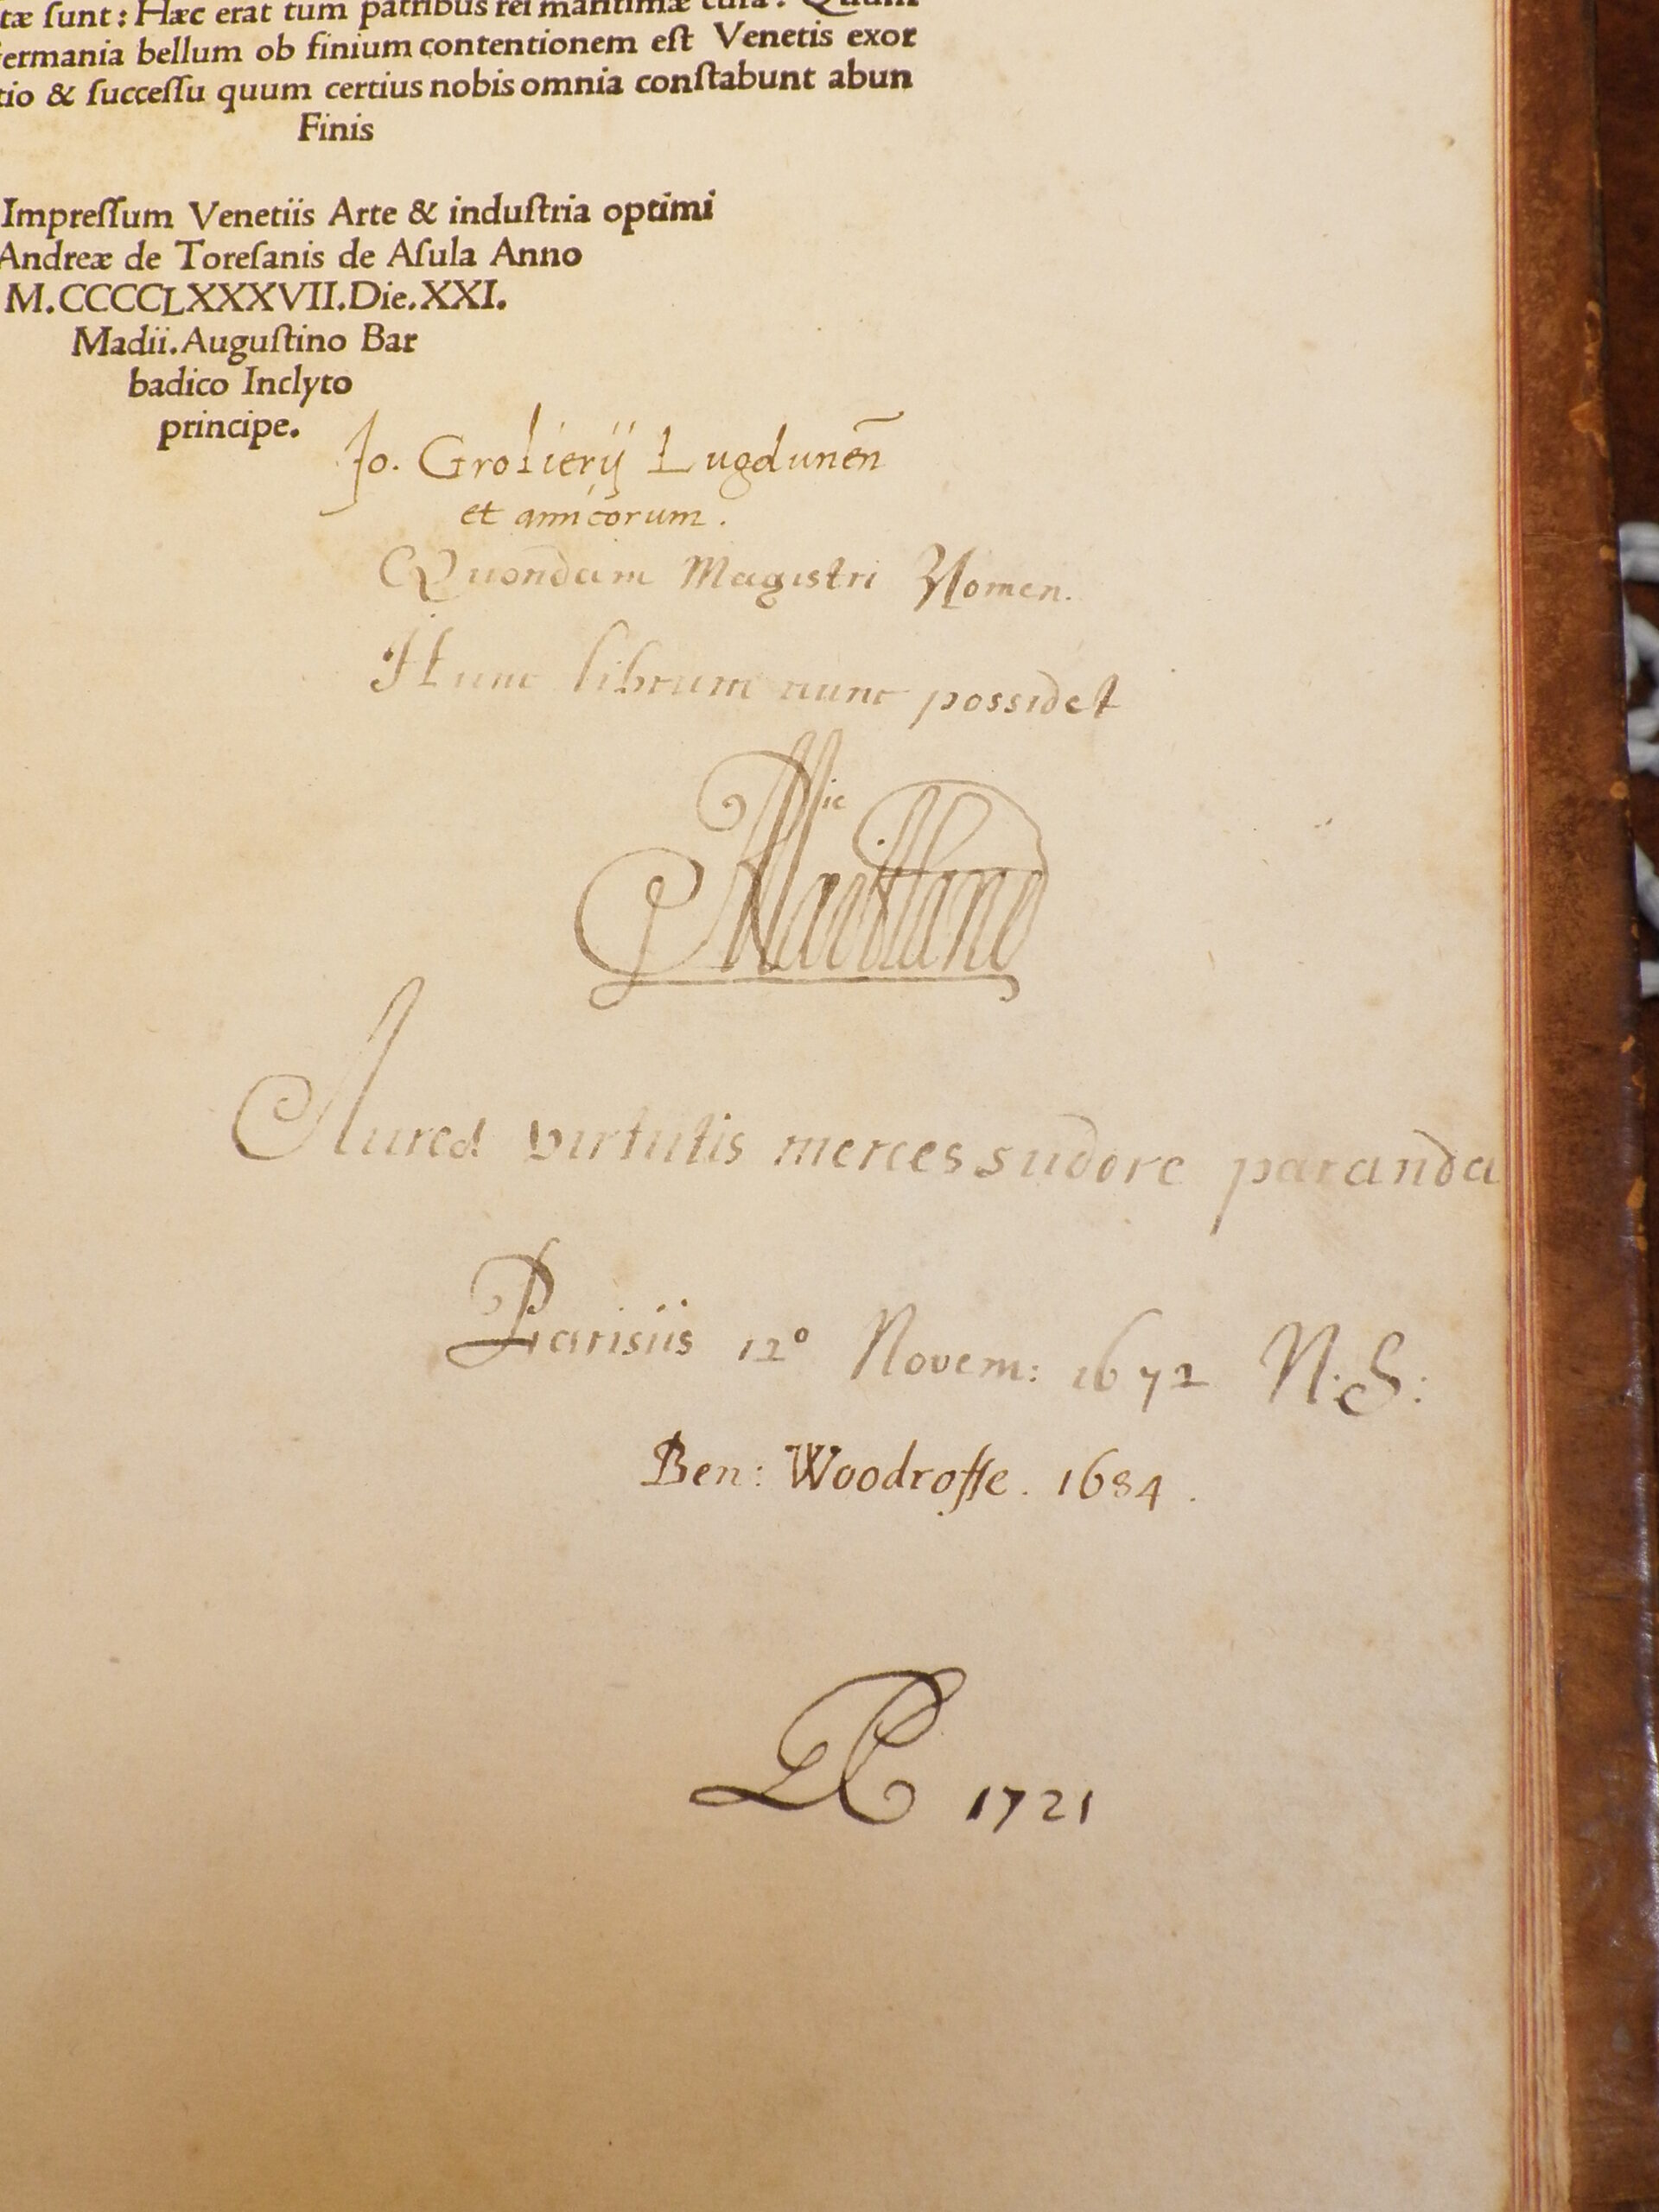 tæ ſunt: Hæc erat tum patribus rei maritimæ cura: Quum
ermania bellum ob finium contentionem eſt Venetis exor
tio & ſucceſſu quum certius nobis omnia conſtabunt abun
Finis
Impreſſum Venetiis Arte & induſtria optimi
Andreæ de Toreſanis de Aſula Anno
M.CCCCLXXXVII.Die.XXI.
Madii.Auguſtino Bar
badico Inclyto
principe.
Jo. Grolierij Lugdunen̄
et amicorum.
Quondam Magistri Nomen.
Hunc librum nunc possidet
Ric Maitland
Aurea virtutis merces sudore paranda
Parisiis 12º Novem: 1672 N:S:
Ben: Woodroffe. 1684.
1721